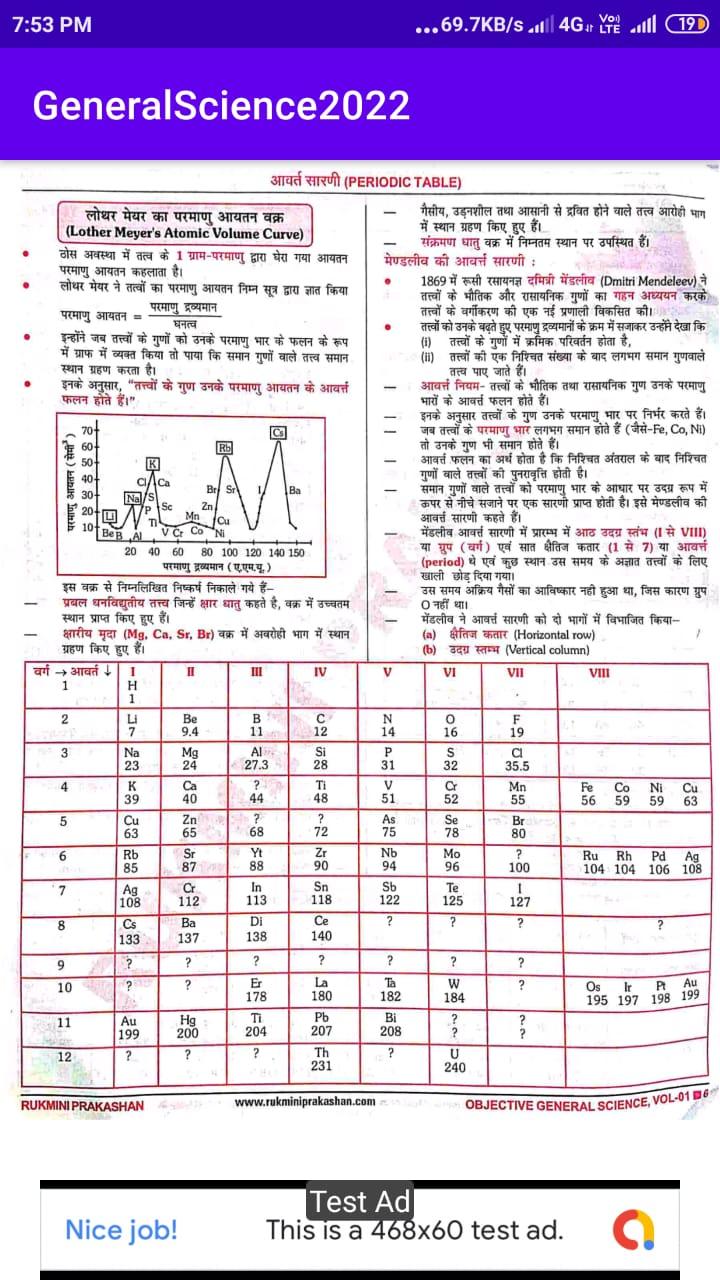 7:53 PM
...69.7KB/s 4G Vo) LTE 19
GeneralScience2022
आवर्त सारणी (PERIODIC TABLE)
लोथर मेयर का परमाणु आयतन वक्र
(Lother Meyer's Atomic Volume Curve)
• ठोस अवस्था में तत्व के 1 ग्राम-परमाणु द्वारा घेरा गया आयतन
परमाणु आयतन कहलाता है।
• लोथर मेयर ने तत्वों का परमाणु आयतन निम्न सूत्र द्वारा ज्ञात किया
परमाणु आयतन = परमाणु द्रव्यमान
घनत्व
• इन्होंने जब तत्वों के गुणों को उनके परमाणु भार के फलन के रूप
में ग्राफ में व्यक्त किया तो पाया कि समान गुणों वाले तत्त्व समान
स्थान ग्रहण करता है।
• इनके अनुसार, “तत्त्वों के गुण उनके परमाणु आयतन के आवर्त्त
फलन होते हैं।”
परमाणु आयतन (सेमी³)
70
60
50
40
30
20
10
Li
Be B
Na
Al
P
S
Cl
K
Ca
Ti
Sc
V Cr
Mn
Co
Zn
Ni
Cu
Br
Rb
Sr
I
Cs
Ba
20 40 60 80 100 120 140 150
परमाणु द्रव्यमान (ए.एम.यू.)
इस वक्र से निम्नलिखित निष्कर्ष निकाले गये हैं–
— प्रबल धनविद्युतीय तत्त्व जिन्हें क्षार धातु कहते है, वक्र में उच्चतम
स्थान प्राप्त किए हुए हैं।
— क्षारीय मृदा (Mg, Ca, Sr, Br) वक्र में अवरोही भाग में स्थान
ग्रहण किए हुए हैं।
— गैसीय, उड़नशील तथा आसानी से द्रवित होने वाले तत्त्व आरोही भाग
में स्थान ग्रहण किए हुए हैं।
— संक्रमण धातु वक्र में निम्नतम स्थान पर उपस्थित हैं।
मेण्डलीव की आवर्त्त सारणी :
• 1869 में रूसी रसायनज्ञ दमित्री मेंडलीव (Dmitri Mendeleev) ने
तत्त्वों के भौतिक और रासायनिक गुणों का गहन अध्ययन करके
तत्त्वों के वर्गीकरण की एक नई प्रणाली विकसित की।
• तत्त्वों को उनके बढ़ते हुए परमाणु द्रव्यमानों के क्रम में सजाकर उन्होंने देखा कि
(i) तत्त्वों के गुणों में क्रमिक परिवर्तन होता है,
(ii) तत्त्वों की एक निश्चित संख्या के बाद लगभग समान गुणवाले
तत्त्व पाए जाते हैं।
— आवर्त्त नियम- तत्त्वों के भौतिक तथा रासायनिक गुण उनके परमाणु
भारों के आवर्त्त फलन होते हैं।
— इनके अनुसार तत्त्वों के गुण उनके परमाणु भार पर निर्भर करते हैं।
— जब तत्त्वों के परमाणु भार लगभग समान होते हैं (जैसे-Fe, Co, Ni)
तो उनके गुण भी समान होते हैं।
— आवर्त्त फलन का अर्थ होता है कि निश्चित अंतराल के बाद निश्चित
गुणों वाले तत्त्वों की पुनरावृत्ति होती है।
— समान गुणों वाले तत्त्वों को परमाणु भार के आधार पर उदग्र रूप में
ऊपर से नीचे सजाने पर एक सारणी प्राप्त होती है। इसे मेण्डलीव की
आवर्त्त सारणी कहते हैं।
— मेंडलीव आवर्त्त सारणी में प्रारम्भ में आठ उदग्र स्तंभ (I से VIII)
या ग्रुप (वर्ग) एवं सात क्षैतिज कतार (1 से 7) या आवर्त्त
(period) थे एवं कुछ स्थान उस समय के अज्ञात तत्त्वों के लिए
खाली छोड़ दिया गया।
— उस समय अक्रिय गैसों का आविष्कार नही हुआ था, जिस कारण ग्रुप
O नहीं था।
— मेंडलीव ने आवर्त्त सारणी को दो भागों में विभाजित किया–
(a) क्षैतिज कतार (Horizontal row)
(b) उदग्र स्तम्भ (Vertical column)
वर्ग → आवर्त ↓ I II III IV V VI VII VIII
1 H
1
2 Li Be B C N O F
7 9.4 11 12 14 16 19
3 Na Mg Al Si P S Cl
23 24 27.3 28 31 32 35.5
4 K Ca ? Ti V Cr Mn Fe Co Ni Cu
39 40 44 48 51 52 55 56 59 59 63
5 Cu Zn ? ? As Se Br
63 65 68 72 75 78 80
6 Rb Sr Yt Zr Nb Mo ? Ru Rh Pd Ag
85 87 88 90 94 96 100 104 104 106 108
7 Ag Cr In Sn Sb Te I
108 112 113 118 122 125 127
8 Cs Ba Di Ce ? ? ? ?
133 137 138 140
9 ? ? ? ? ? ? ?
10 ? ? Er La Ta W ? Os Ir Pt Au
178 180 182 184 195 197 198 199
11 Au Hg Ti Pb Bi ? ?
199 200 204 207 208 ? ?
12 ? ? ? Th ? U
231 240
RUKMINI PRAKASHAN www.rukminiprakashan.com OBJECTIVE GENERAL SCIENCE, VOL-01 6
Test Ad
Nice job! This is a 468x60 test ad.